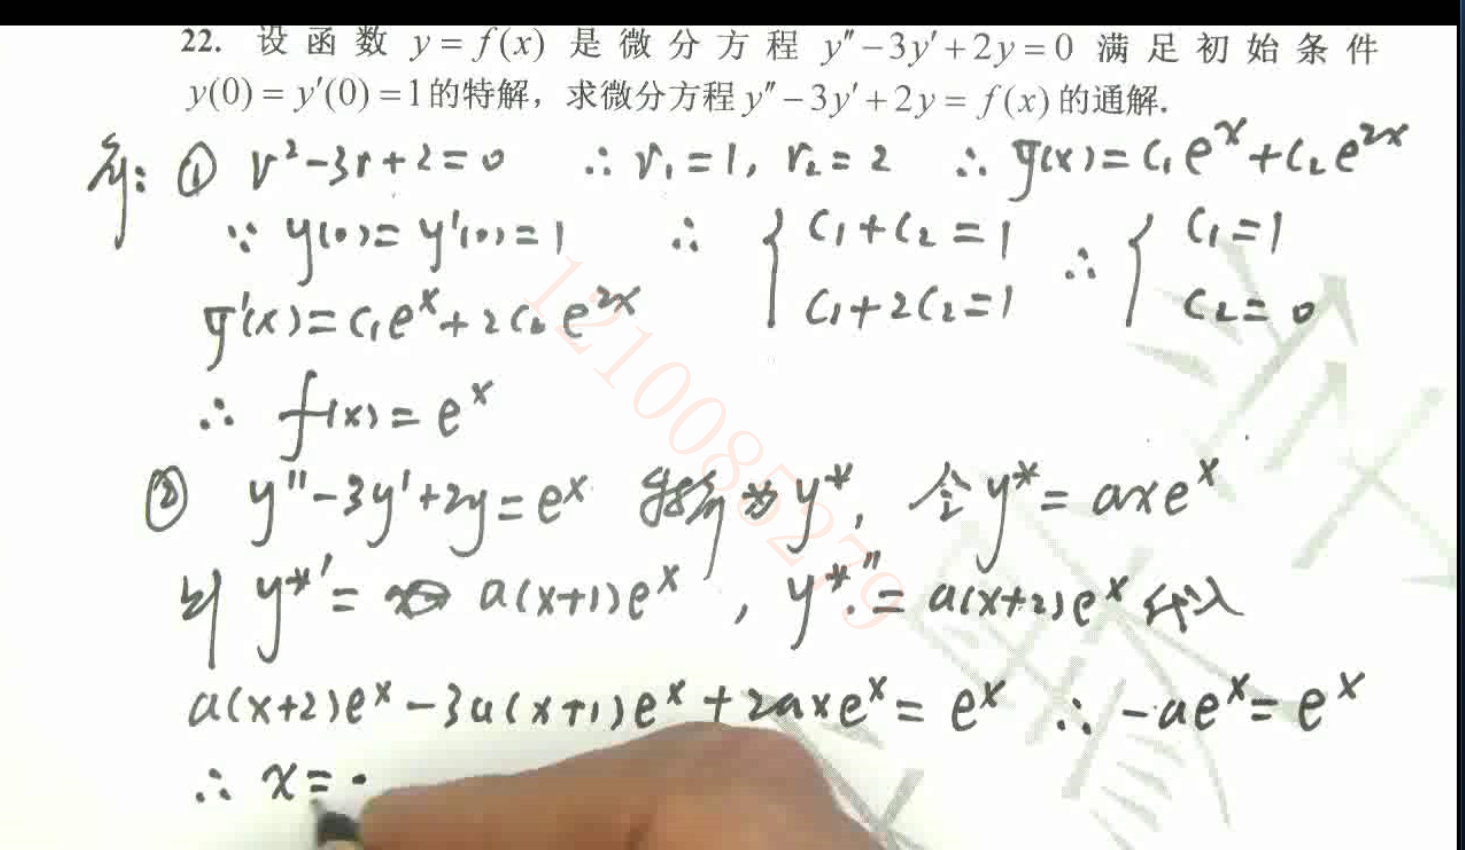 22. 设函数 y = f(x) 是微分方程 y″-3y′+2y=0 满足初始条件
y(0) = y′(0) =1的特解，求微分方程 y″-3y′+2y = f(x) 的通解.
解: ① r²-3r+2=0 ∴ r₁=1, r₂=2 ∴ y(x)=C₁eˣ+C₂e²ˣ
∵ y(0)=y′(0)=1 ∴ { C₁+C₂=1 ∴ { C₁=1
y′(x)=C₁eˣ+2C₂e²ˣ C₁+2C₂=1 C₂=0
∴ f(x)=eˣ
② y″-3y′+2y=eˣ 特解为y*, 令y*=axeˣ
则 y*′= a(x+1)eˣ, y*″=a(x+2)eˣ 代入
a(x+2)eˣ-3a(x+1)eˣ+2axeˣ=eˣ ∴ -aeˣ=eˣ
∴ x=-
1210085279